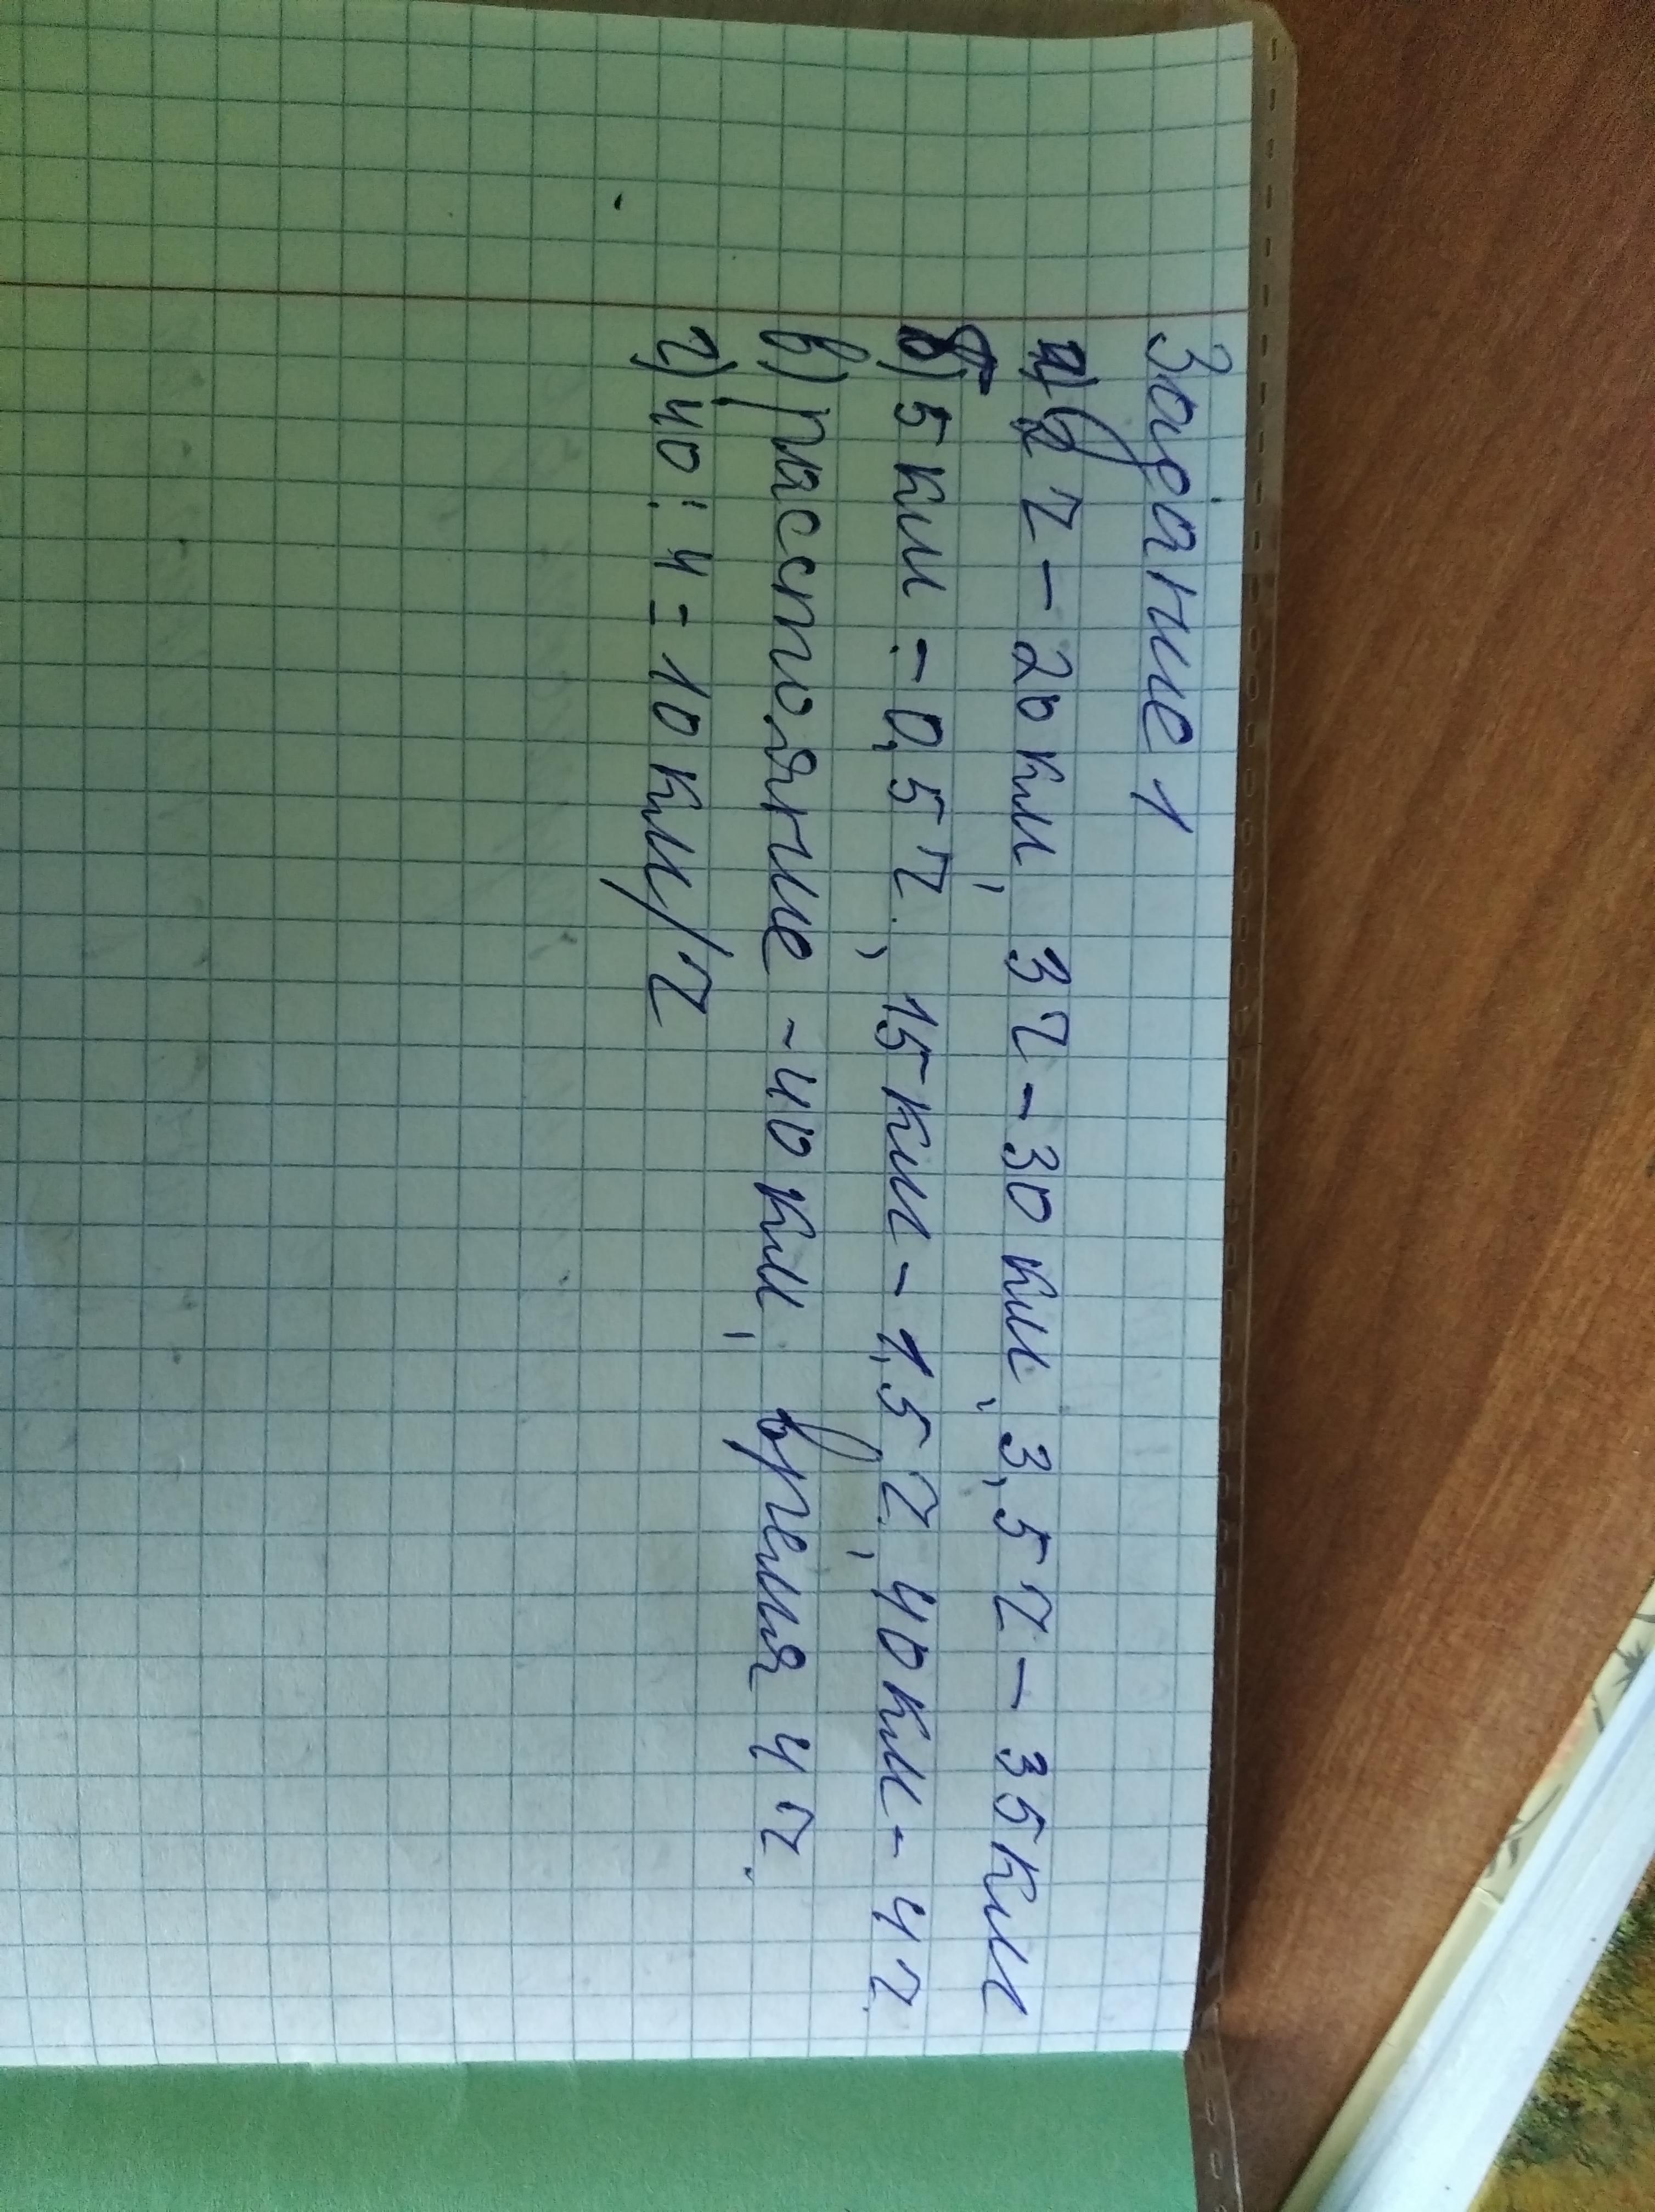 Задание 1
а) 2 ч - 20 км, 3 ч - 30 км, 3,5 ч - 35 км
б) 5 км - 0,5 ч., 15 км - 1,5 ч, 40 км - 4 ч.
в) расстояние - 40 км, время 4 ч.
г) 40 : 4 = 10 км/ч